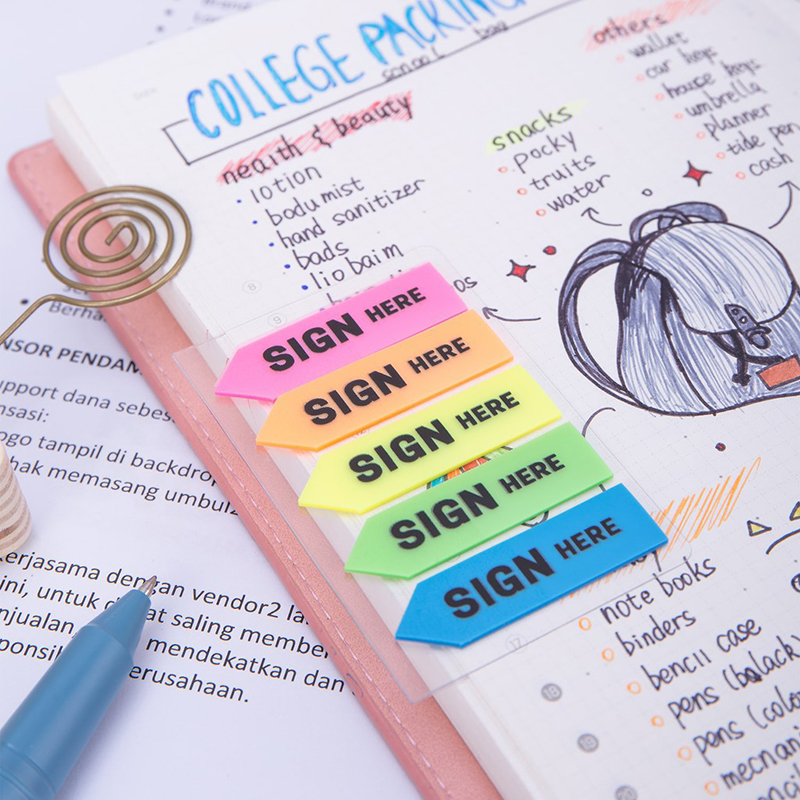 COLLEGE PACKING
school bag
neaith & beauty
lotion
bodu mist
hand sanitizer
bads
lio baim
snacks
pocky
truits
water
others
wallet
car keys
house keys
umbrella
planner
tide pen
cash
SIGN HERE
SIGN HERE
SIGN HERE
SIGN HERE
SIGN HERE
note books
binders
bencil case
pens (balack)
pens (colo
mecnani
8
9
17
18
19
20
NSOR PENDAM
upport dana sebes
nsasi:
ogo tampil di backdrop
hak memasang umbul
erjasama dengan vendor2 la
ini, untuk dapat saling member
njualan
mendekatkan dan
ponsi
erusahaan.